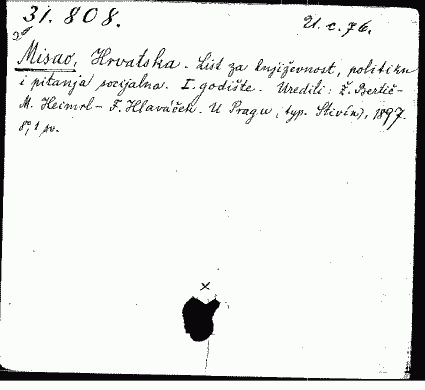 31.808. U.c.76.
Misao, Hrvatska. List za književnost, politiku
i pitanja socijalna. I. godište. Uredili: Ž. Bertić-
M. Heimrl - F. Hlaváček. U Pragu, (typ. Stivín), 1897.
8º, 1 sv.